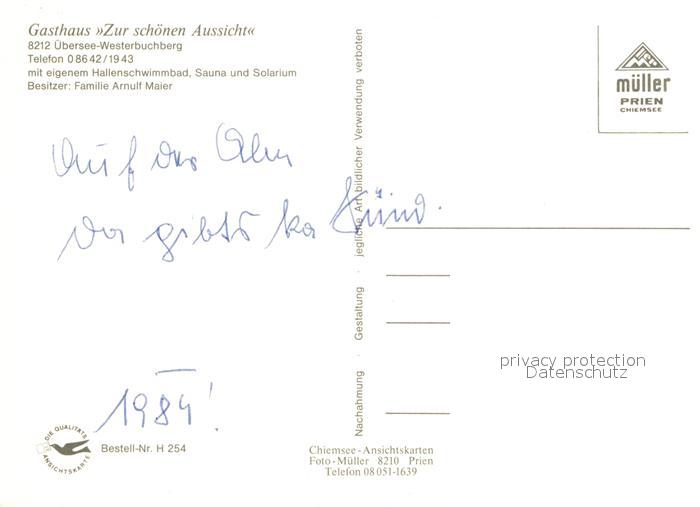 Gasthaus »Zur schönen Aussicht«
8212 Übersee-Westerbuchberg
Telefon 0 86 42 / 19 43
mit eigenem Hallenschwimmbad, Sauna und Solarium
Besitzer: Familie Arnulf Maier
müller
PRIEN
CHIEMSEE
Auf der Alm
da gibts ka Sünd.
1984!
Nachahmung · Gestaltung · jegliche Art bildlicher Verwendung verboten
privacy protection
Datenschutz
DIE QUALITÄTS
ANSICHTSKARTE
Bestell-Nr. H 254
Chiemsee-Ansichtskarten
Foto-Müller 8210 Prien
Telefon 08 051-1639